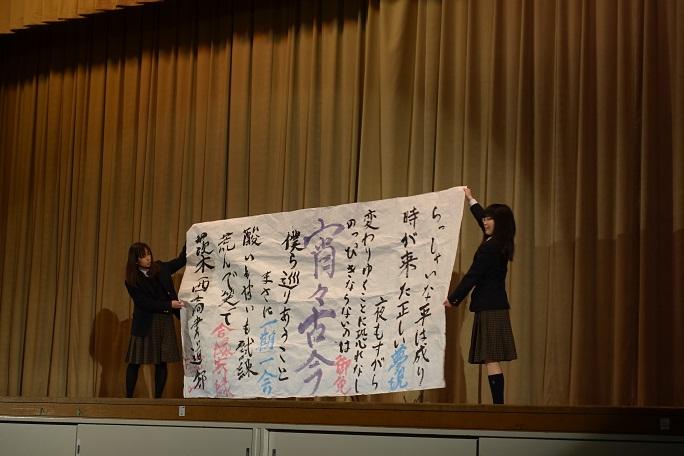 らっしゃいな平は成り
時が来た正しい夢現
夜もすがら
変わりゆくことに恐れなし
のっぴきならないのは御免
宵々古今
僕ら巡りあうこと
まさに一期一会
酸いも甘いも試練
んで笑って合縁奇縁
茨木西高書道部